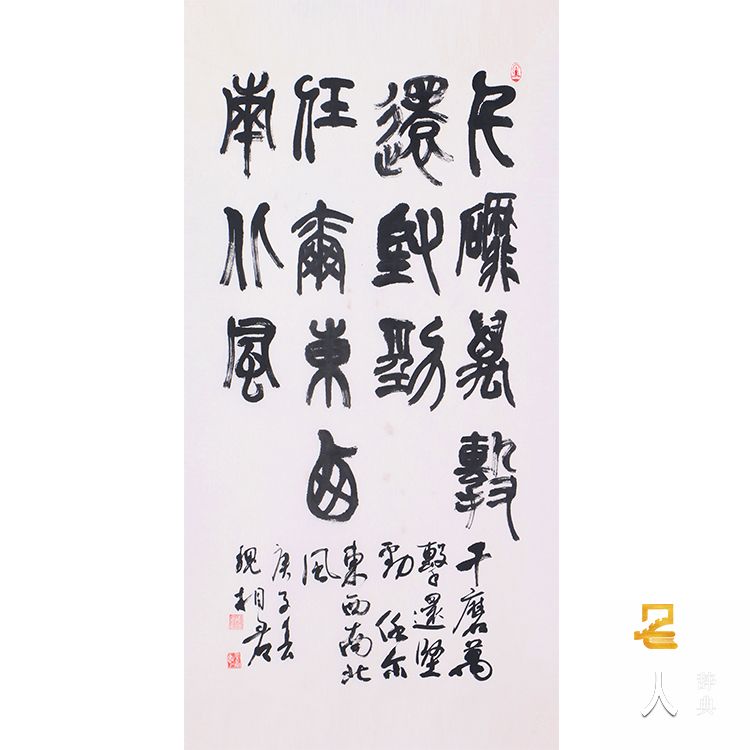 千磨萬擊
還堅勁
任爾東西
南北風
千磨萬
擊還堅
勁任尔
東西南北
風
庚子春
魏相君
名人
辞典